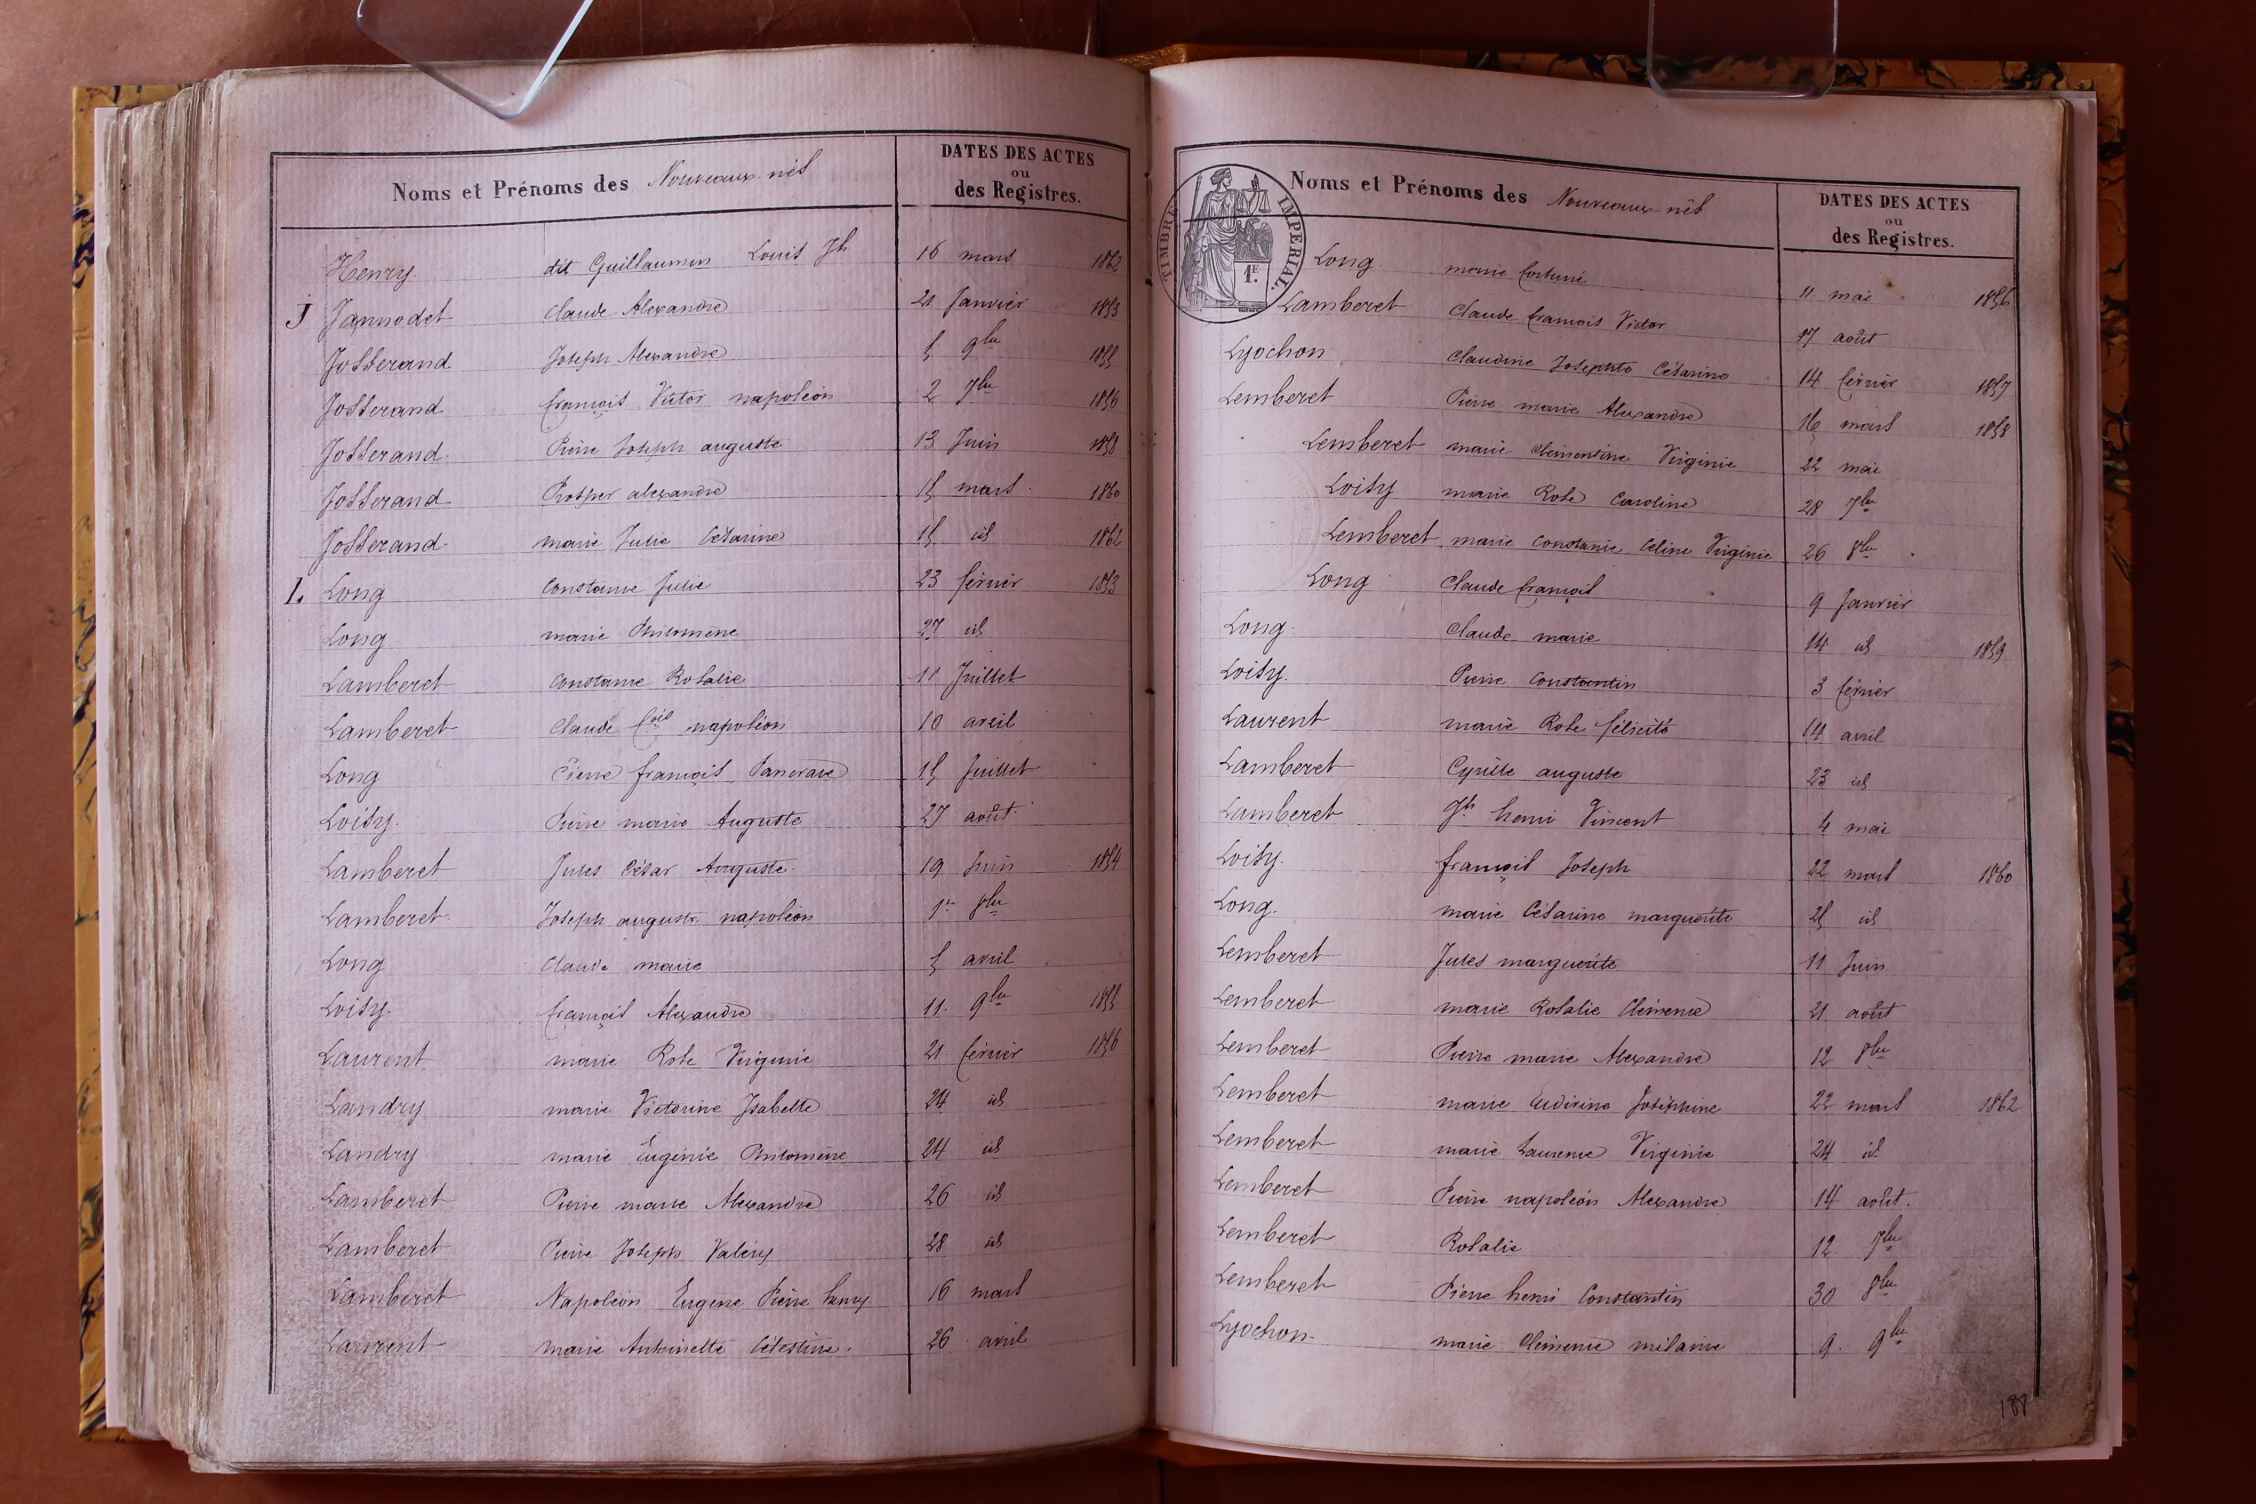 Noms et Prénoms des Nouveaux nés
DATES DES ACTES
ou
des Registres.
Henry dit Guillaumin Louis Jh 16 mars 1862
J Jannodet Claude Alexandre 21 Janvier 1853
Josserand Joseph Alexandre 5 9bre 1855
Josserand françois Victor napoléon 2 7bre 1856
Josserand Pierre Joseph auguste 13 Juin 1858
Josserand Prosper alexandre 15 mars 1860
Josserand marie Julie Césarine 15 id 1862
L. Long Constance Julie 23 février 1853
Long marie Philomène 27 id
Lamberet Constance Rosalie 11 Juillet
Lamberet Claude fois napoléon 10 avril
Long Pierre françois Pancrace 15 Juillet
Loisy Pierre marie Auguste 27 août
Lamberet Jules César Auguste 19 Juin 1854
Lamberet Joseph auguste napoléon 1er 8bre
Long Claude marie 5 avril
Loisy françois Alexandre 11 9bre 1855
Laurent marie Rose Virginie 21 février 1856
Landry marie Victorine Isabelle 24 id
Landry marie Eugénie Philomène 24 id
Lamberet Pierre marie Alexandre 26 id
Lamberet Pierre Joseph Valéry 28 id
Lamberet Napoléon Eugène Pierre henry 16 mars
Laurent Marie Antoinette Célestine. 26 avril
TIMBRE IMPERIAL.
1E.
Noms et Prénoms des Nouveaux nés
DATES DES ACTES
ou
des Registres.
Long marie fortuné 11 mai 1856
Lamberet Claude françois Victor 17 août
Lyochon Claudine Josephte Césarine 14 février 1857
Lemberet Pierre marie Alexandre 16 mars 1858
Lemberet marie Clémentine Virginie 22 mai
Loisy marie Rose Caroline 28 7bre
Lemberet marie Constance Céline Virginie 26 8bre
Long Claude françois 9 Janvier
Long Claude marie 14 id 1859
Loisy Pierre Constantin 3 février
Laurent marie Rose félicité 14 avril
Lamberet Cyrille auguste 23 id
Lamberet Jh henri Vincent 4 mai
Loisy françois Joseph 22 mars 1860
Long. marie Césarine marguerite 25 id
Lemberet Jules marguerite 11 Juin
Lemberet marie Rosalie Clémence 21 août
Lemberet Pierre marie Alexandre 12 8bre
Lemberet marie Joséphine 22 mars 1862
Lemberet marie Laurence Virginie 24 id
Lemberet Pierre napoléon Alexandre 14 août.
Lemberet Rosalie 12 7bre
Lemberet Pierre henri Constantin 30 8bre
Lyochon marie Clémence mélanie 9 9bre
188